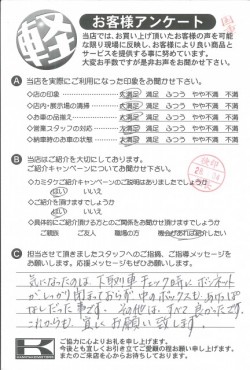 軽
お客様アンケート
当店では、お買い上げ頂いたお客様の声を可能
な限り現場に反映し、お客様により良い商品と
サービスを提供する事に努めています。
大変お手数ですが是非お声をお聞かせ下さい。
A 当店を実際にご利用になった印象をお聞かせ下さい。
◇店の印象 大満足 満足 ふつう やや不満 不満
◇店内・展示場の清掃 大満足 満足 ふつう やや不満 不満
◇お車の品揃え 大満足 満足 ふつう やや不満 不満
◇営業スタッフの対応 大満足 満足 ふつう やや不満 不満
◇納車時のお車の状態 大満足 満足 ふつう やや不満 不満
B 当店はご紹介を大切にしております。
ご紹介キャンペーンについてお聞かせ下さい。
◇カミタケご紹介キャンペーンのご説明はありましたでしょうか
はい いいえ
◇ご紹介を頂けますでしょうか
はい いいえ
◇具体的にご紹介頂ける方とのご関係をお聞かせ頂けますでしょうか
ご親戚 友人 ご近所 職場 機会があれば紹介したい
C 担当させて頂きましたスタッフへのご指摘、ご指導メッセージを
お願いします。応援メッセージもぜひお願いします。
気になったのは下取り車チェックの時にボンネット
がしっかり閉まっておらず 中のボックスも あけっぱ
なしだった事です。その他は、すべて良かったです。
これからも、宜しくお願い致します。
K
ご協力に心よりお礼を申し上げます。
今後とも宜しくお引き立てご愛顧の程お願い申し上げます。
またのご来店を心からお待ちしております。